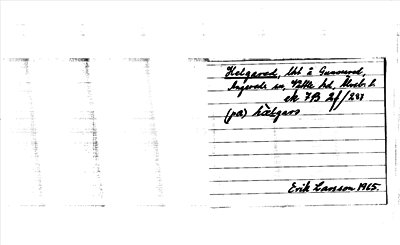 Helgered, lht å Gunnered,
Angereds sn, Vättle hd, Älvsb. l.
ek 7B 2f/281
(på) hælgars
Erik Larsson 1965.